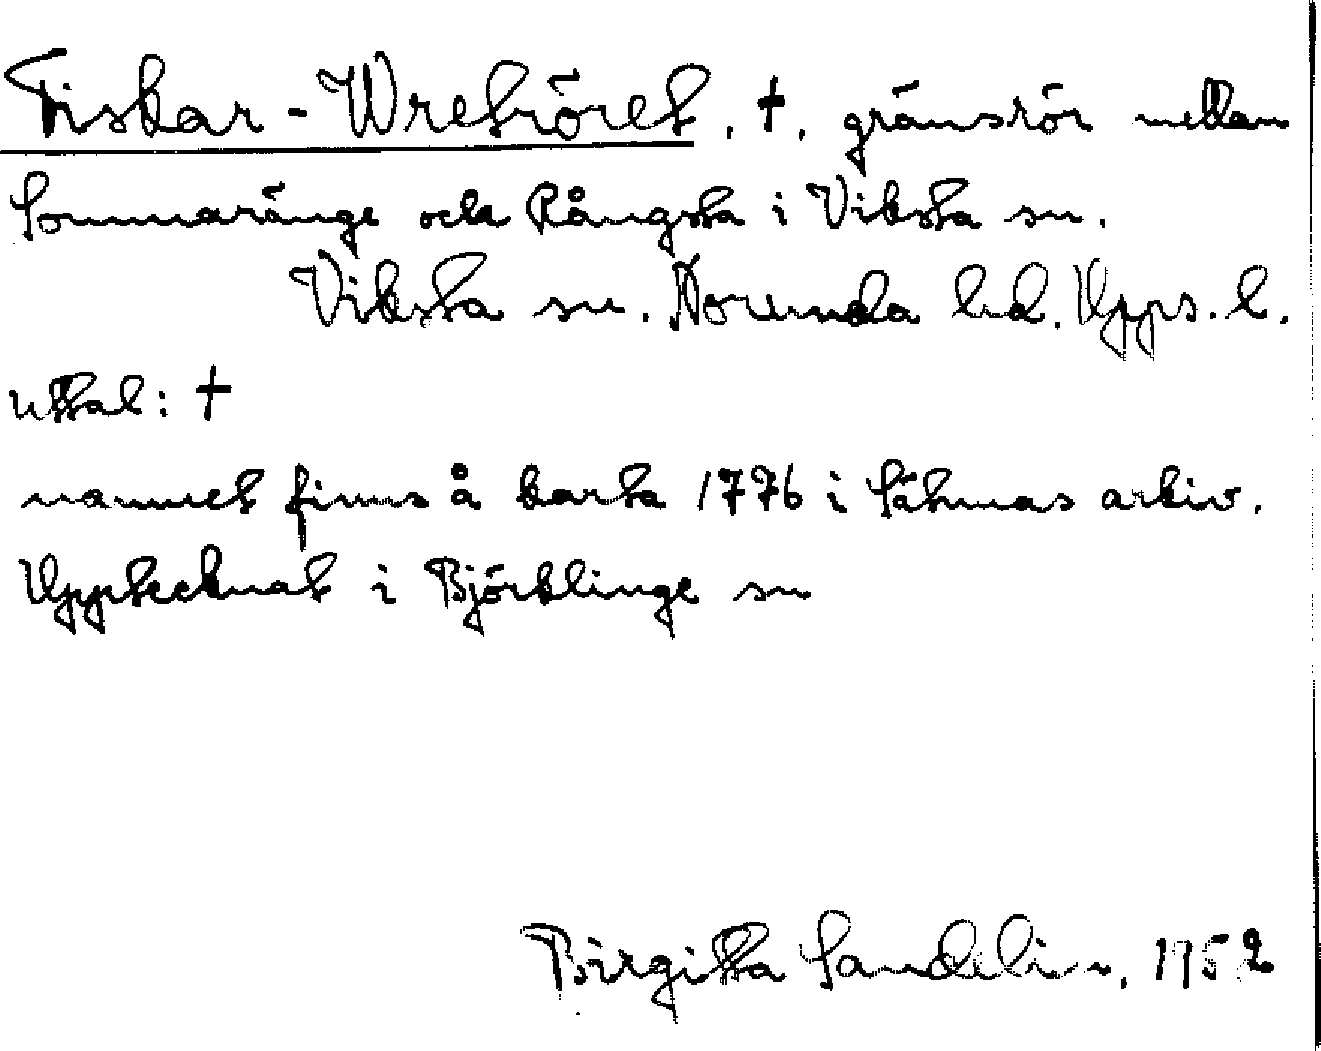 Fiskar-Wretröret, †, gränsrör mellan
Sommaränge och Rångsta i Viksta sn.
Viksta sn. Norunda hd. Upps. l.
uttal: †
namnet finns å karta 1776 i Sätunas arkiv.
Upptecknat i Björklinge sn
Birgitta Sandelin, 1952